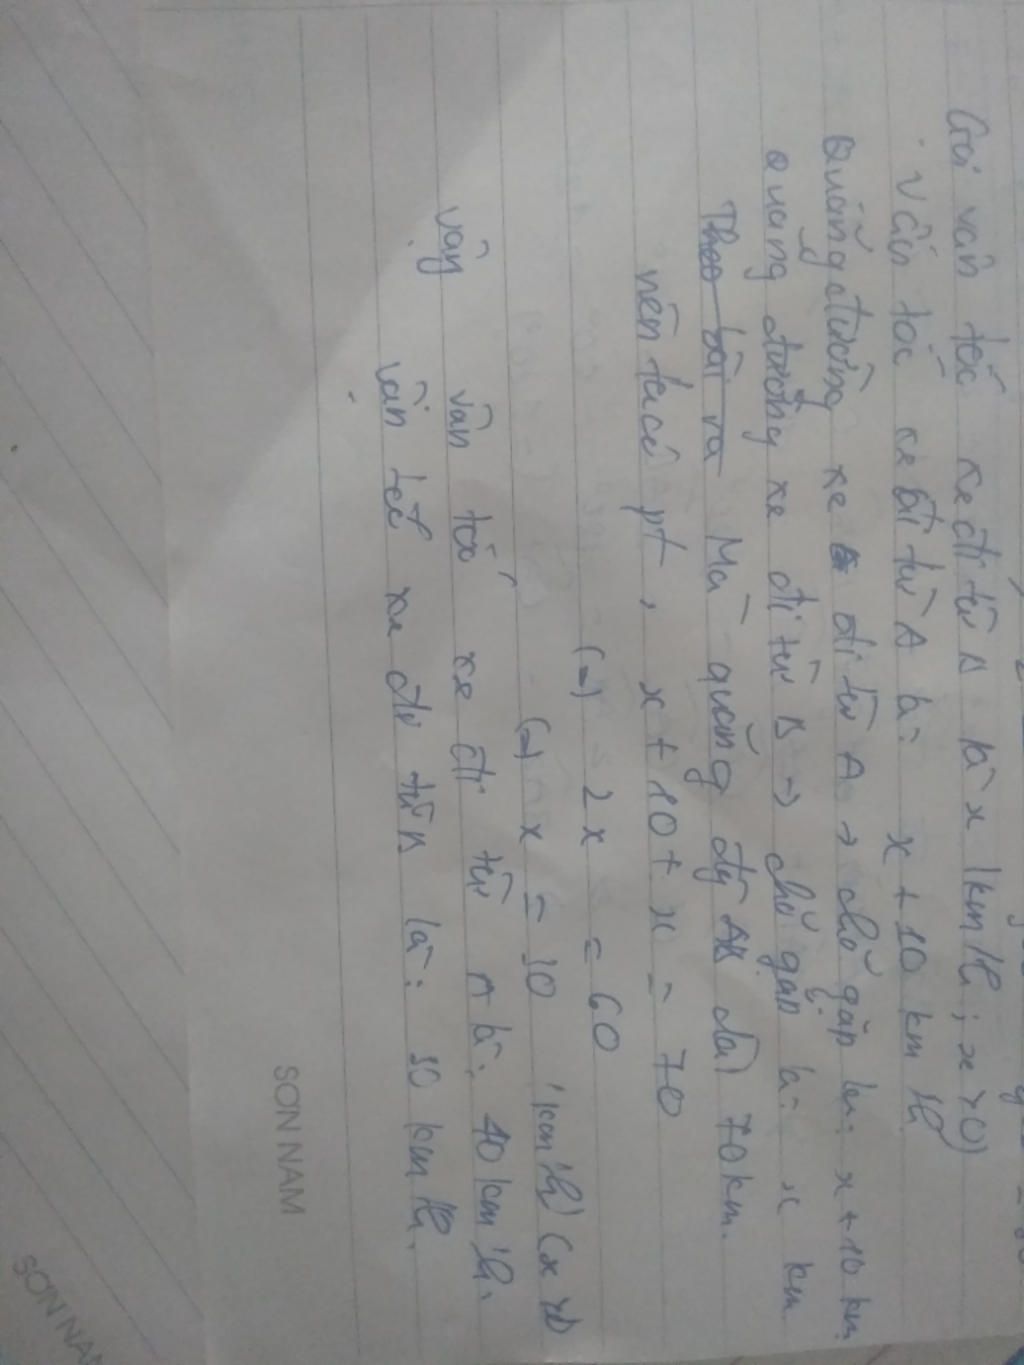 Gọi vân tốc xe đi từ B là x (km/h; x>0)
Vân tốc xe đi từ A là: x + 10 km/h
Quãng đường xe đi từ A → chỗ gặp là: x + 10 km
Quãng đường xe đi từ B → chỗ gặp là: x km
Theo bài ra Mà quãng đg AB dài 70km.
nên ta có pt, x + 10 + x = 70
(=) 2x = 60
(=) x = 30 (km/h) (x>0)
Vậy vân tốc xe đi từ A là: 40 km/h.
vân tốc xe đi từ B là: 30 km/h.
SON NAM
SON NAM